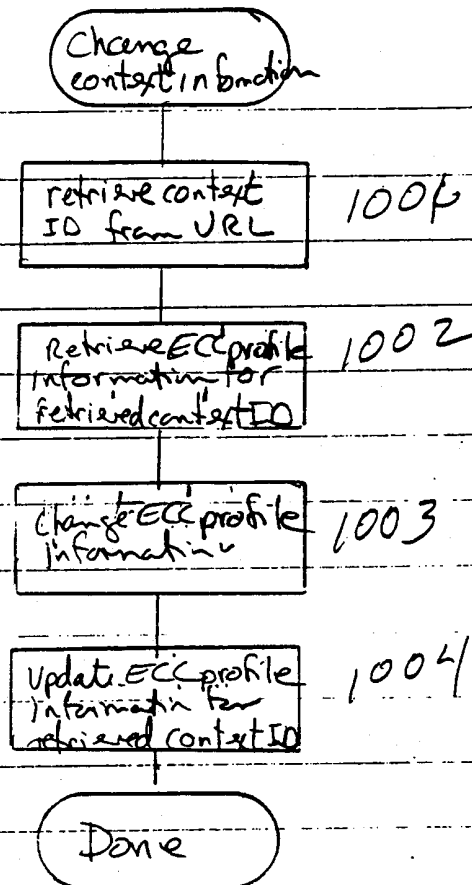 Change
context information
retrieve context
ID from URL
Retrieve ECC profile
information for
retrieved context ID
1002
Change ECC profile
information
1003
Update ECC profile
information for
retrieved context ID
1004
Done